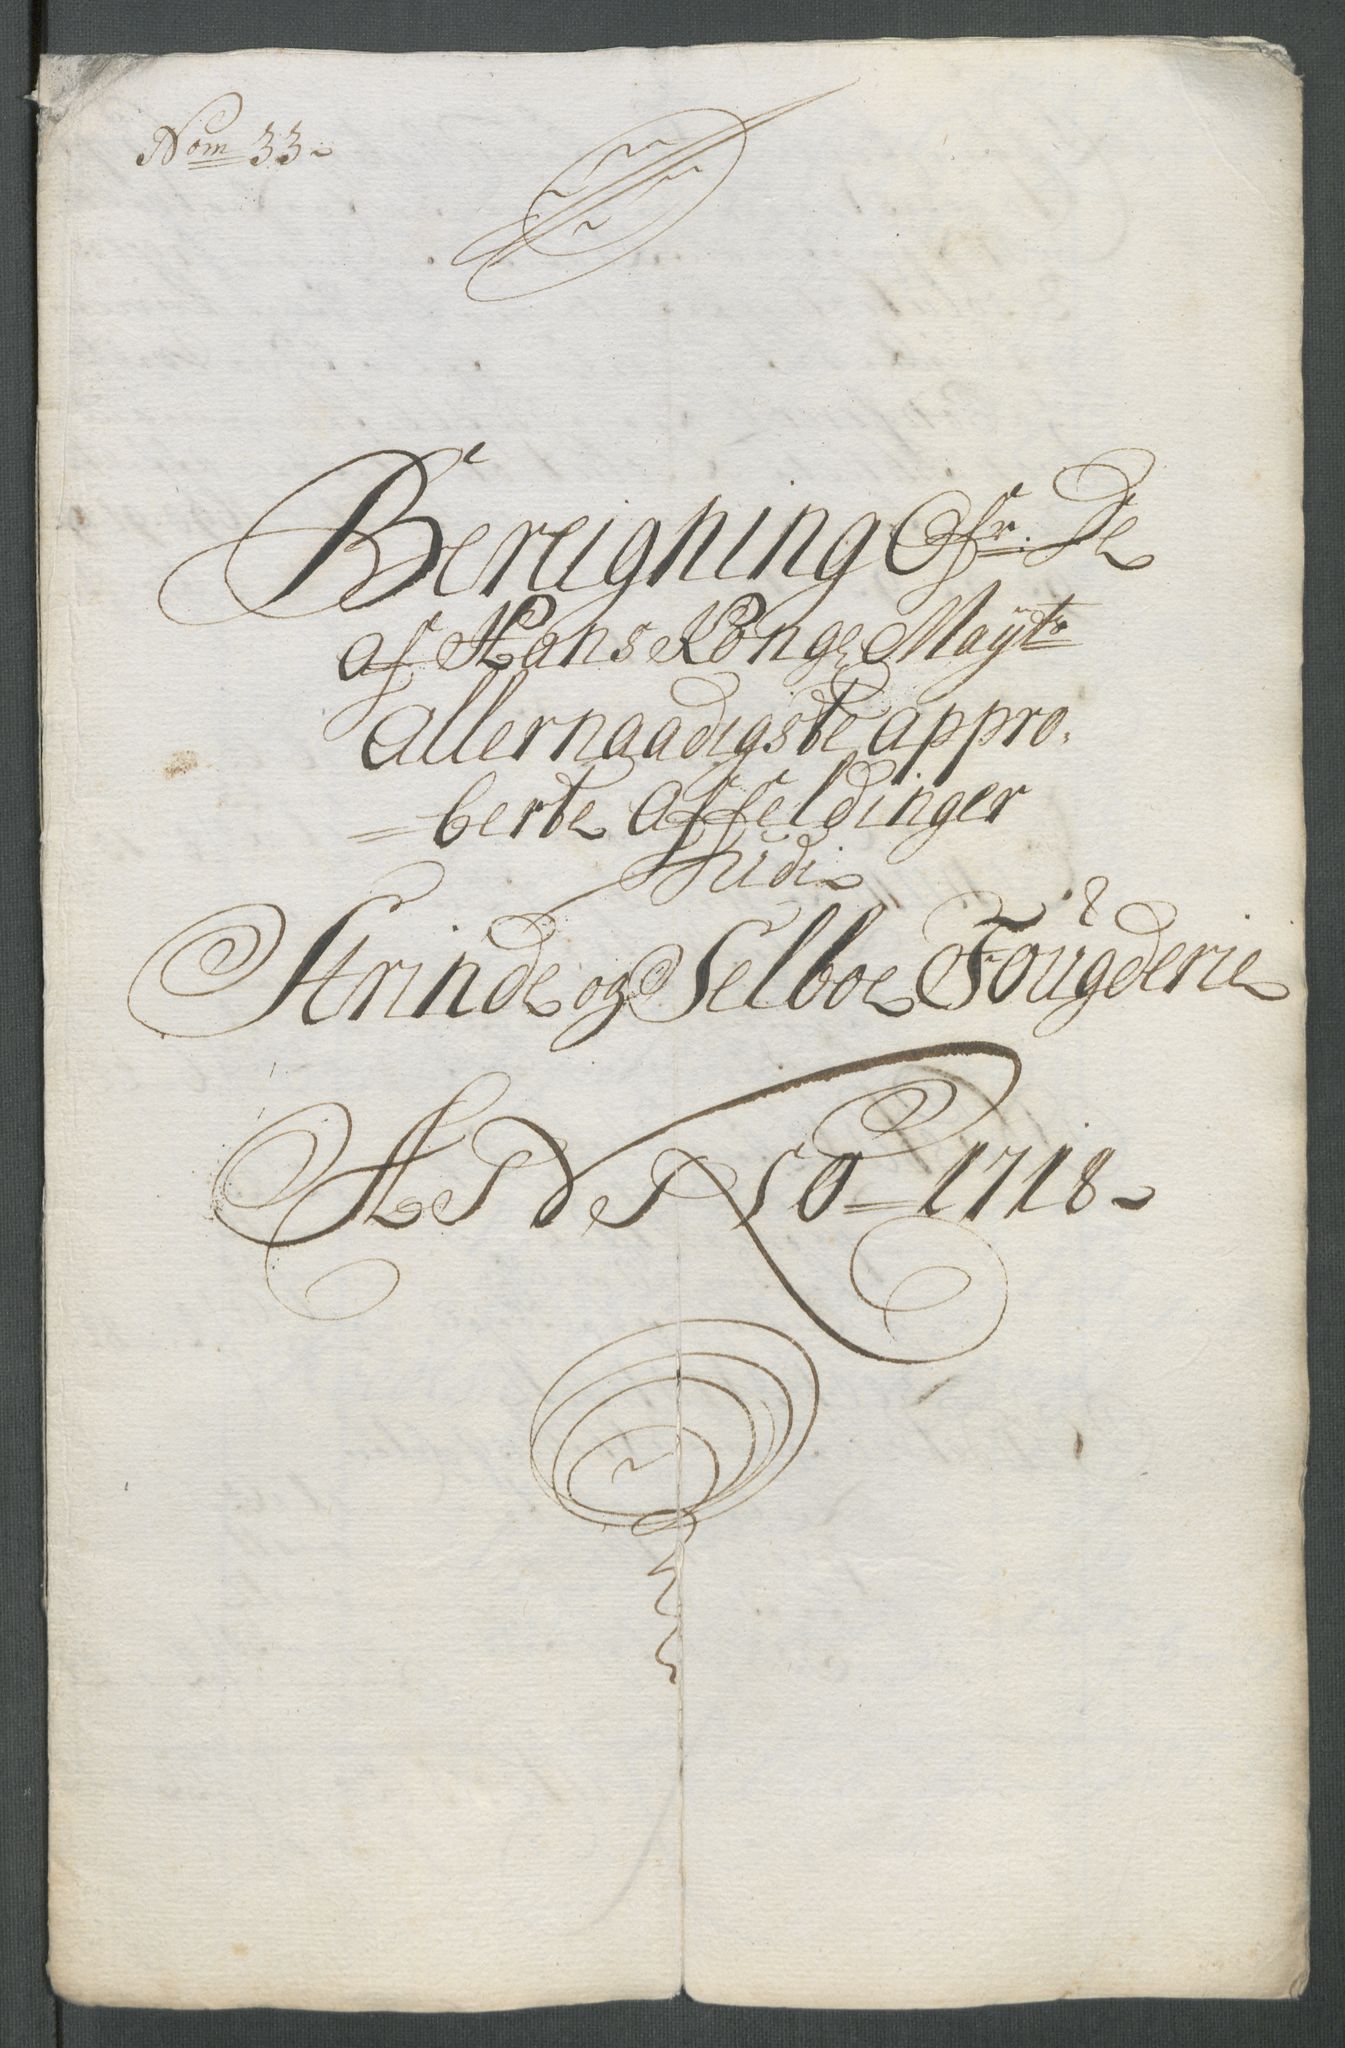 Nom 33
Bereigning Ofr. De
af Hans Konge Mayts
allernaadigste appro,
=berte affeldinger
Udi
Strinde og Selboe Fougderie
1718